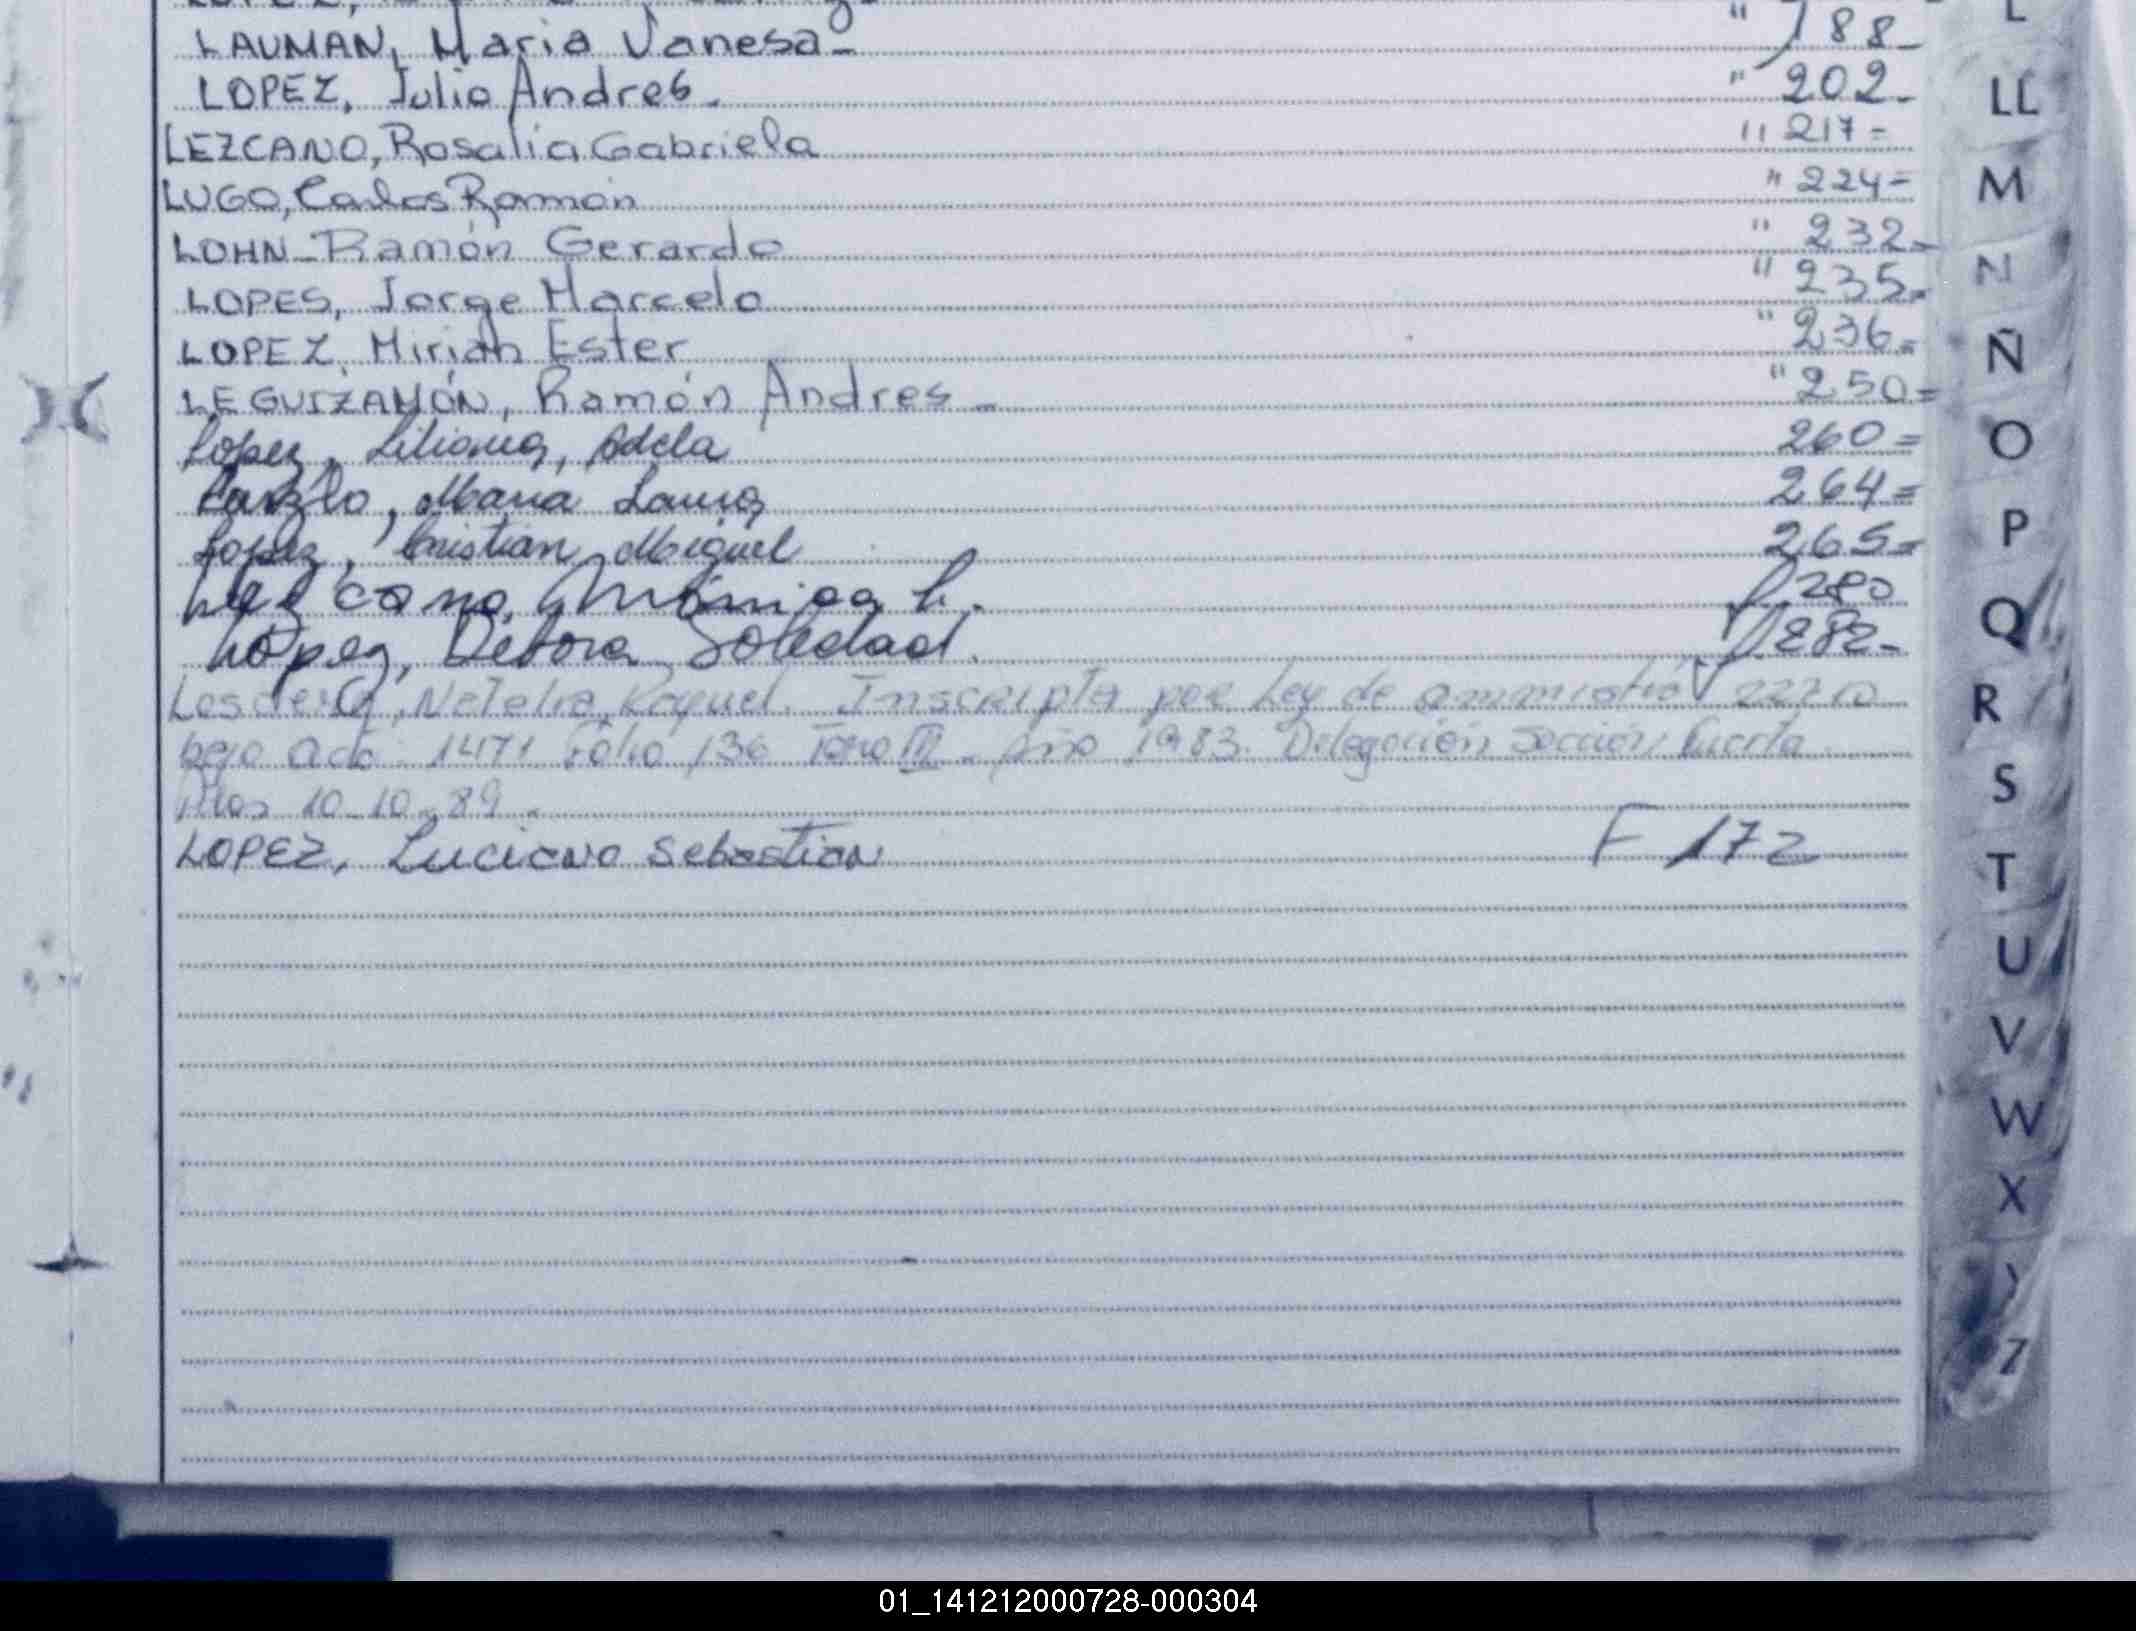 LAUMAN, Maria Vanesa - " 188-
LOPEZ, Julio Andres. " 202-
LEZCANO, Rosalia Gabriela " 217-
LUGO, Carlos Ramón " 224-
LOHN - Ramón Gerardo " 232-
LOPES, Jorge Marcelo " 235-
LOPEZ, Mirian Ester " 236-
LEGUIZAMÓN, Ramón Andres - " 250=
Lopez, Liliana, Adela 260=
, Maria Laura 264=
Lopez, Cristian Miguel 265=
Lezcano, Mónica L. F 280
Lopez, Debora Soledad. F 282-
, Natalia Raquel. Inscripta por Ley de
bajo acta 1471 Folio 136 Tomo III - Año 1983. Delegación Sección Cuarta
10-10-89-
LOPEZ, Luciano Sebastian F 172
L
LL
M
N
Ñ
O
P
Q
R
S
T
U
V
W
X
Z
01_141212000728-000304